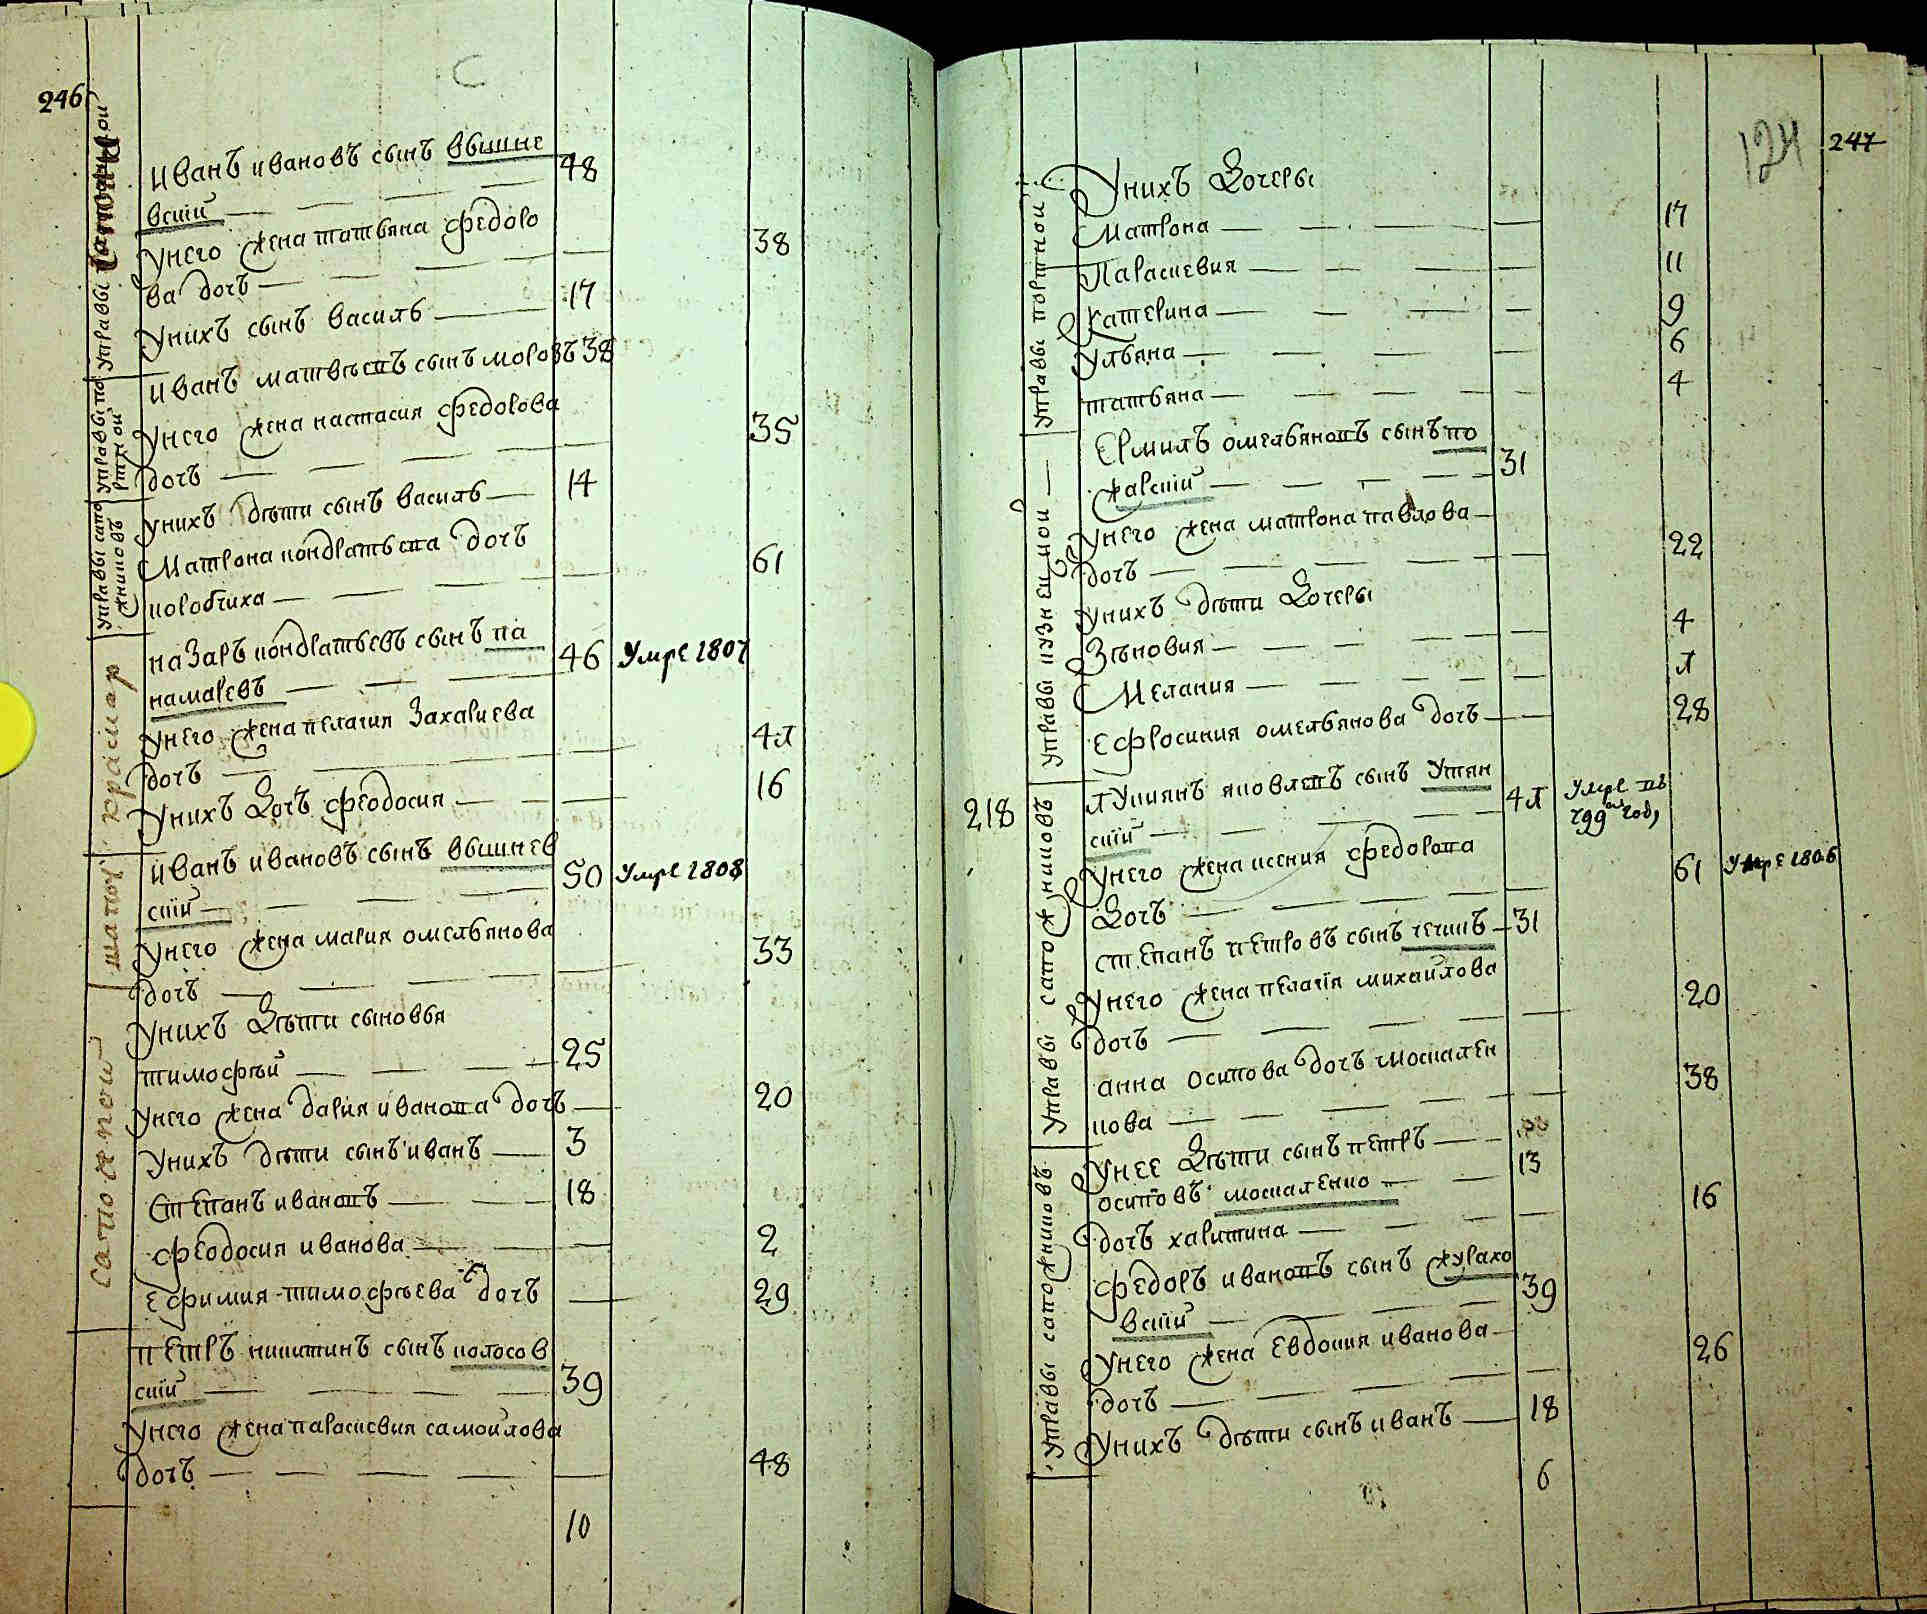 246
С
управы сапожной
Иванъ ивановъ сынъ вышне 48
вский
унего жена татьяна федоро 38
ва дочь
унихъ сынъ василь 17
управы портной
Иванъ матвѣевъ сынъ морозъ 38
унего жена настасия федорова 35
дочь
унихъ дѣти сынъ василь 14
управы сапожниковъ
Матрона кондратьева дочь 61
коробчиха
крамар
назаръ кондратьевъ сынъ па 46 Умре 1807
намаревъ
унего жена пелагия захариева 4л
дочь
унихъ дочь феодосия 16
шатый
иванъ ивановъ сынъ вышнев 50 Умре 1808
ский
унего жена мария омельянова 33
дочь
унихъ дѣти сыновья
сапожной
тимофѣй 25
унего жена дария иванова дочь 20
унихъ дѣти сынъ иванъ 3
Степанъ ивановъ 18
феодосия иванова 2
ефимия тимофѣева дочь 29
петръ никитинъ сынъ колосов 39
ский
унего жена параскевия самойлова 48
дочь
10
124 247
управы портной
унихъ дочеры
матрона 17
Параскевия 11
катерина 9
ульяна 6
татьяна 4
управы кузнецкой
Ермилъ омельяновъ сынъ по 31
жарский
унего жена матрона павлова 22
дочь
унихъ дѣти дочеры
Зѣновия 4
Мелания л
ефросиния омельянова дочь 28
218
управы сапожниковъ
лукиянъ яковлевъ сынъ утян 4л Умре въ
ский 799 году
унего жена ксения федорова 61 Умре 1806
дочь
степанъ петровъ сынъ чечинъ 31
унего жена пелагія михайлова 20
дочь
анна осипова дочь москален 38
кова
управы сапожниковъ
унее дѣти сынъ петръ 13
осиповъ москаленко
дочь харитина 16
федоръ ивановъ сынъ журахо 39
вский
унего жена евдокия иванова 26
дочь
унихъ дѣти сынъ иванъ 18
6